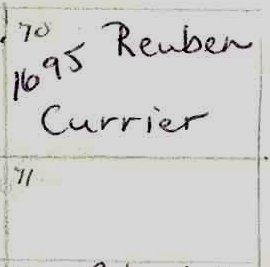 70
Reuben
1695
Currier
71